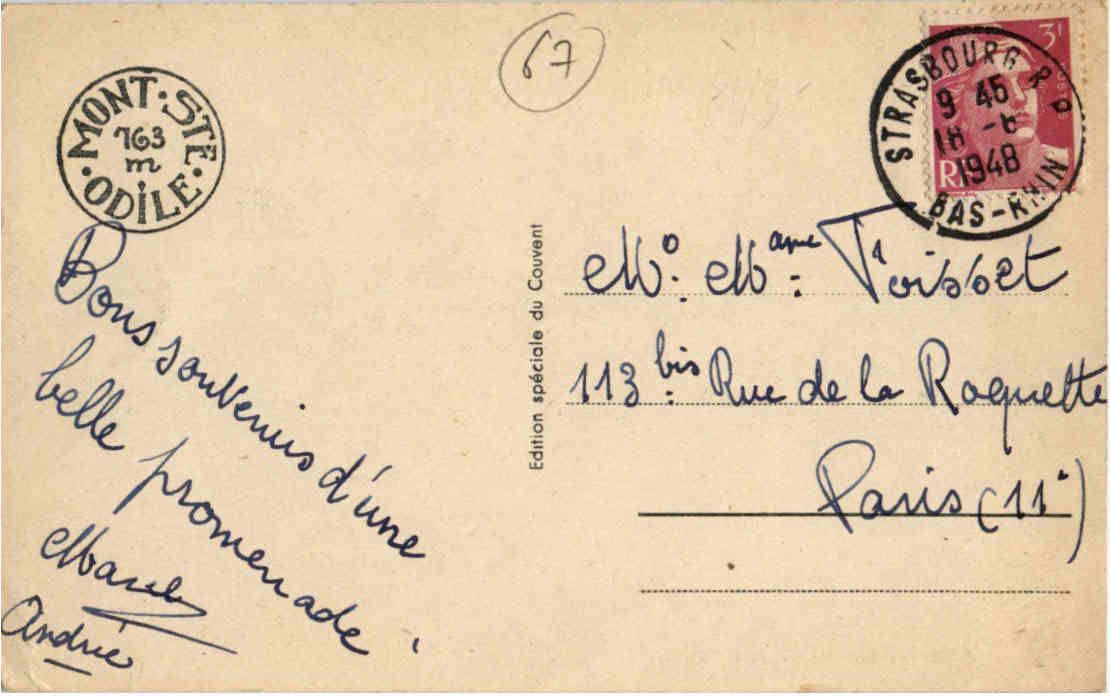 MONT·STE·ODILE·
763
m
67
3F
STRASBOURG R P
9 45
18 -6
1948
BAS-RHIN
Bons souvenirs d'une
belle promenade.
Marcel
Andrée
Edition spéciale du Couvent
Mr. Mame: Toisset
113 bis Rue de la Roquette
Paris (11e)